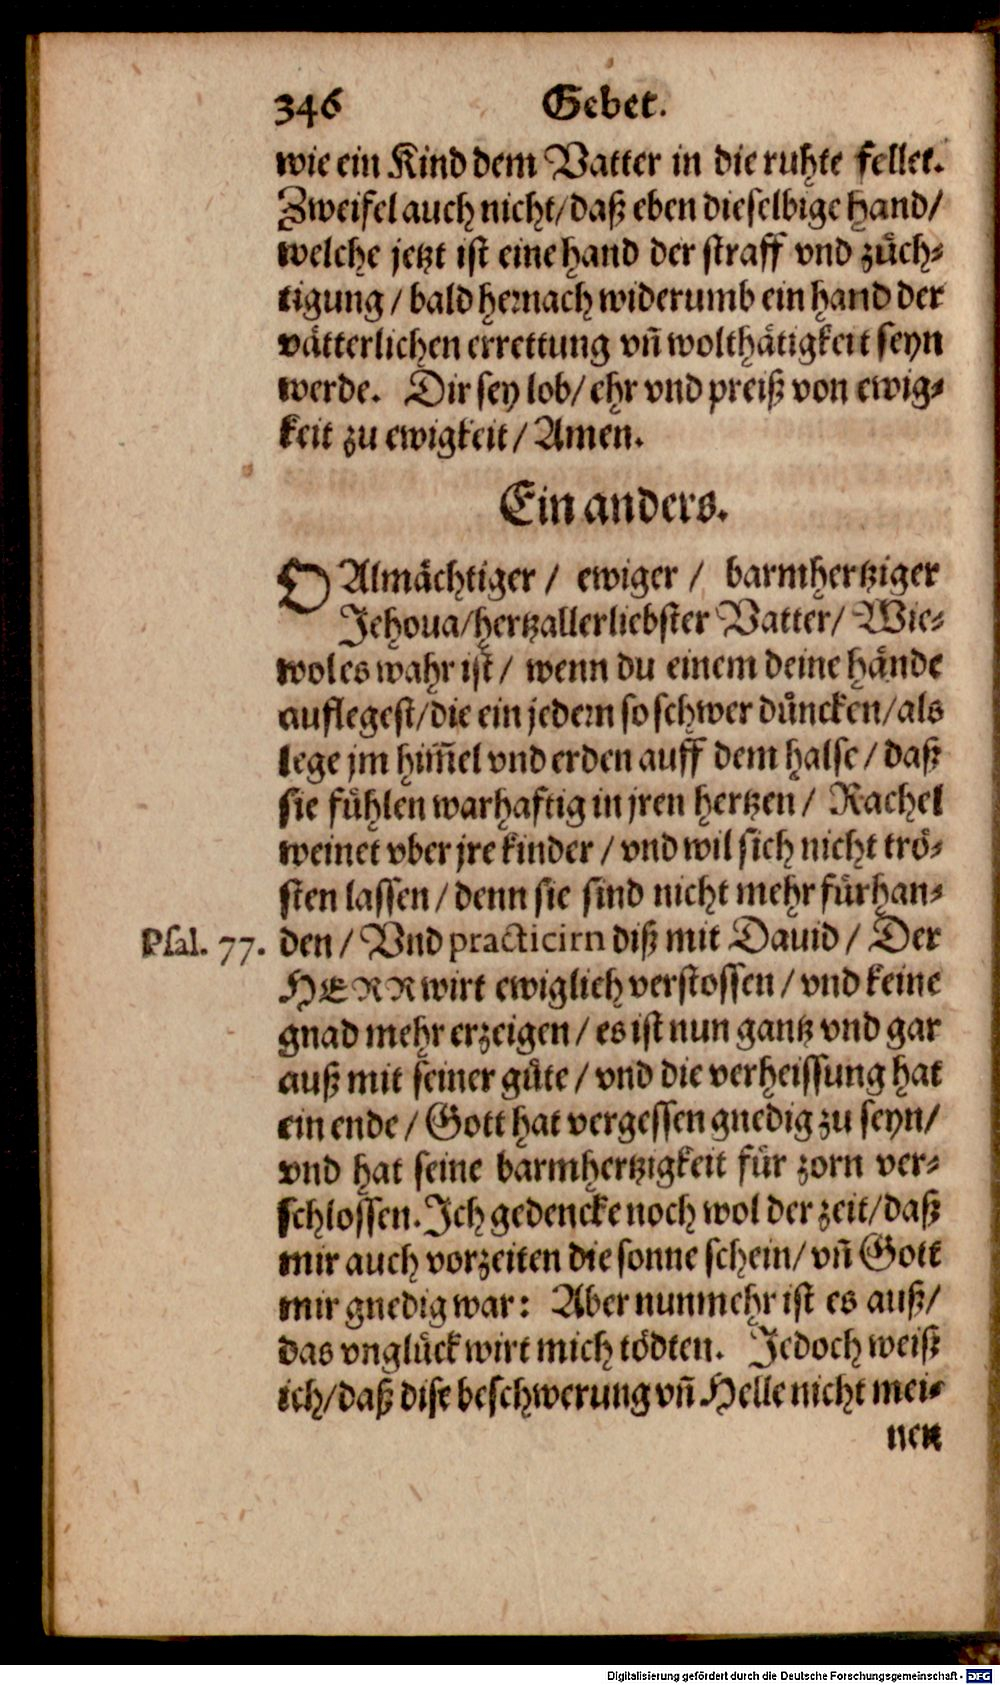 346 Gebet.
wie ein Kind dem Vatter in die ruhte fellet.
Zweifel auch nicht/ daß eben dieselbige hand/
welche jetzt ist eine hand der straff vnd züch-
tigung / bald hernach widerumb ein hand der
vätterlichen errettung vn̄ wolthätigkeit seyn
werde. Dir sey lob/ ehr vnd preiß von ewig-
keit zu ewigkeit / Amen.
Ein anders.
O Almächtiger / ewiger / barmhertziger
Jehoua/hertzallerliebster Vatter/ Wie-
wol es wahr ist / wenn du einem deine hände
auflegest/die ein jedem so schwer düncken/als
lege jm him̄el vnd erden auff dem halse / daß
sie fühlen warhaftig in jren hertzen / Rachel
weinet vber jre kinder / vnd wil sich nicht trö-
sten lassen / denn sie sind nicht mehr fürhan-
Psal. 77. den / Vnd practicirn diß mit Dauid / Der
HERR wirt ewiglich verstossen / vnd keine
gnad mehr erzeigen / es ist nun gantz vnd gar
auß mit seiner güte / vnd die verheissung hat
ein ende / Gott hat vergessen gnedig zu seyn/
vnd hat seine barmhertzigkeit für zorn ver-
schlossen. Ich gedencke noch wol der zeit/daß
mir auch vorzeiten die sonne schein/ vn̄ Gott
mir gnedig war: Aber nunmehr ist es auß/
das vnglück wirt mich tödten. Jedoch weiß
ich/daß dise beschwerung vn̄ Helle nicht mei-
nen
Digitalisierung gefördert durch die Deutsche Forschungsgemeinschaft - DFG